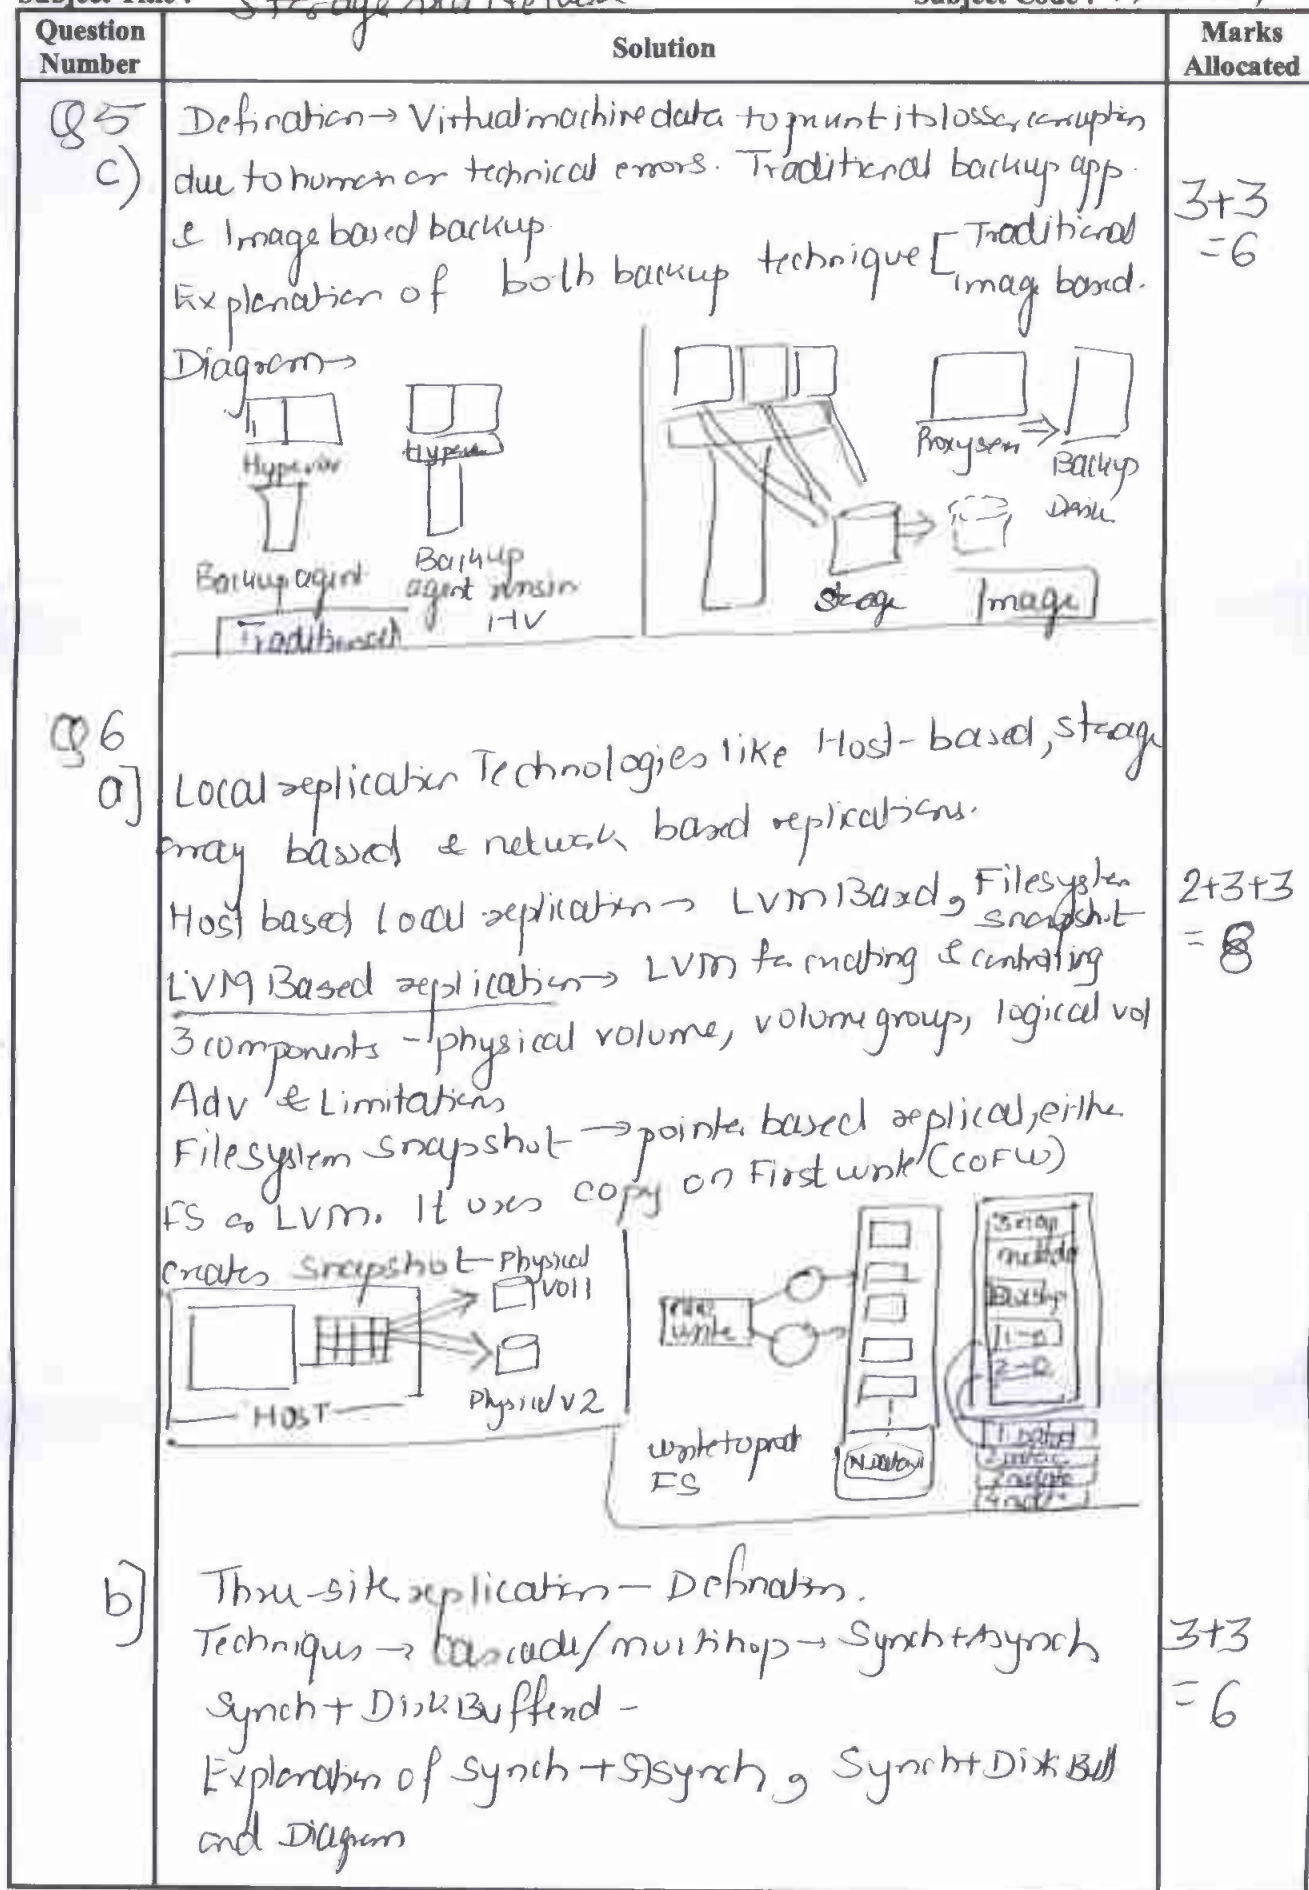 Storage and
Question Number
Solution
Marks Allocated
Q5
c)
Defination → Virtual machine data to its loss
due to human or technical errors. Traditional backup app.
& Image based backup
Explanation of both backup technique [ Traditional
Image based.
3+3
=6
Diagram →
Backup agent
Traditional
Backup
agent runs in
HV
Storage
Proxy
Backup
Image
Q6
a]
Local replication Technologies like Host-based, storage
array bassed & network based replications.
Host based Local replication → LVM Based, Filesystem
snapshot
2+3+3
= 8
LVM Based replication → LVM for creating & controlling
3 components - physical volume, volume group, logical vol
Adv & Limitations
Filesystem Snapshot → pointer based replical, either
FS or LVM. It uses copy on First write (COFW)
creates snapshot
Physical
vol 1
Physical v2
HOST
write
write to prod
FS
Snap
b]
Three-site replication - Defination.
Techniques → cascade/multihop → Synch+Asynch
3+3
= 6
Synch + Disk Buffered -
Explanation of Synch + Asynch, Synch+Disk Buff
and Diagram